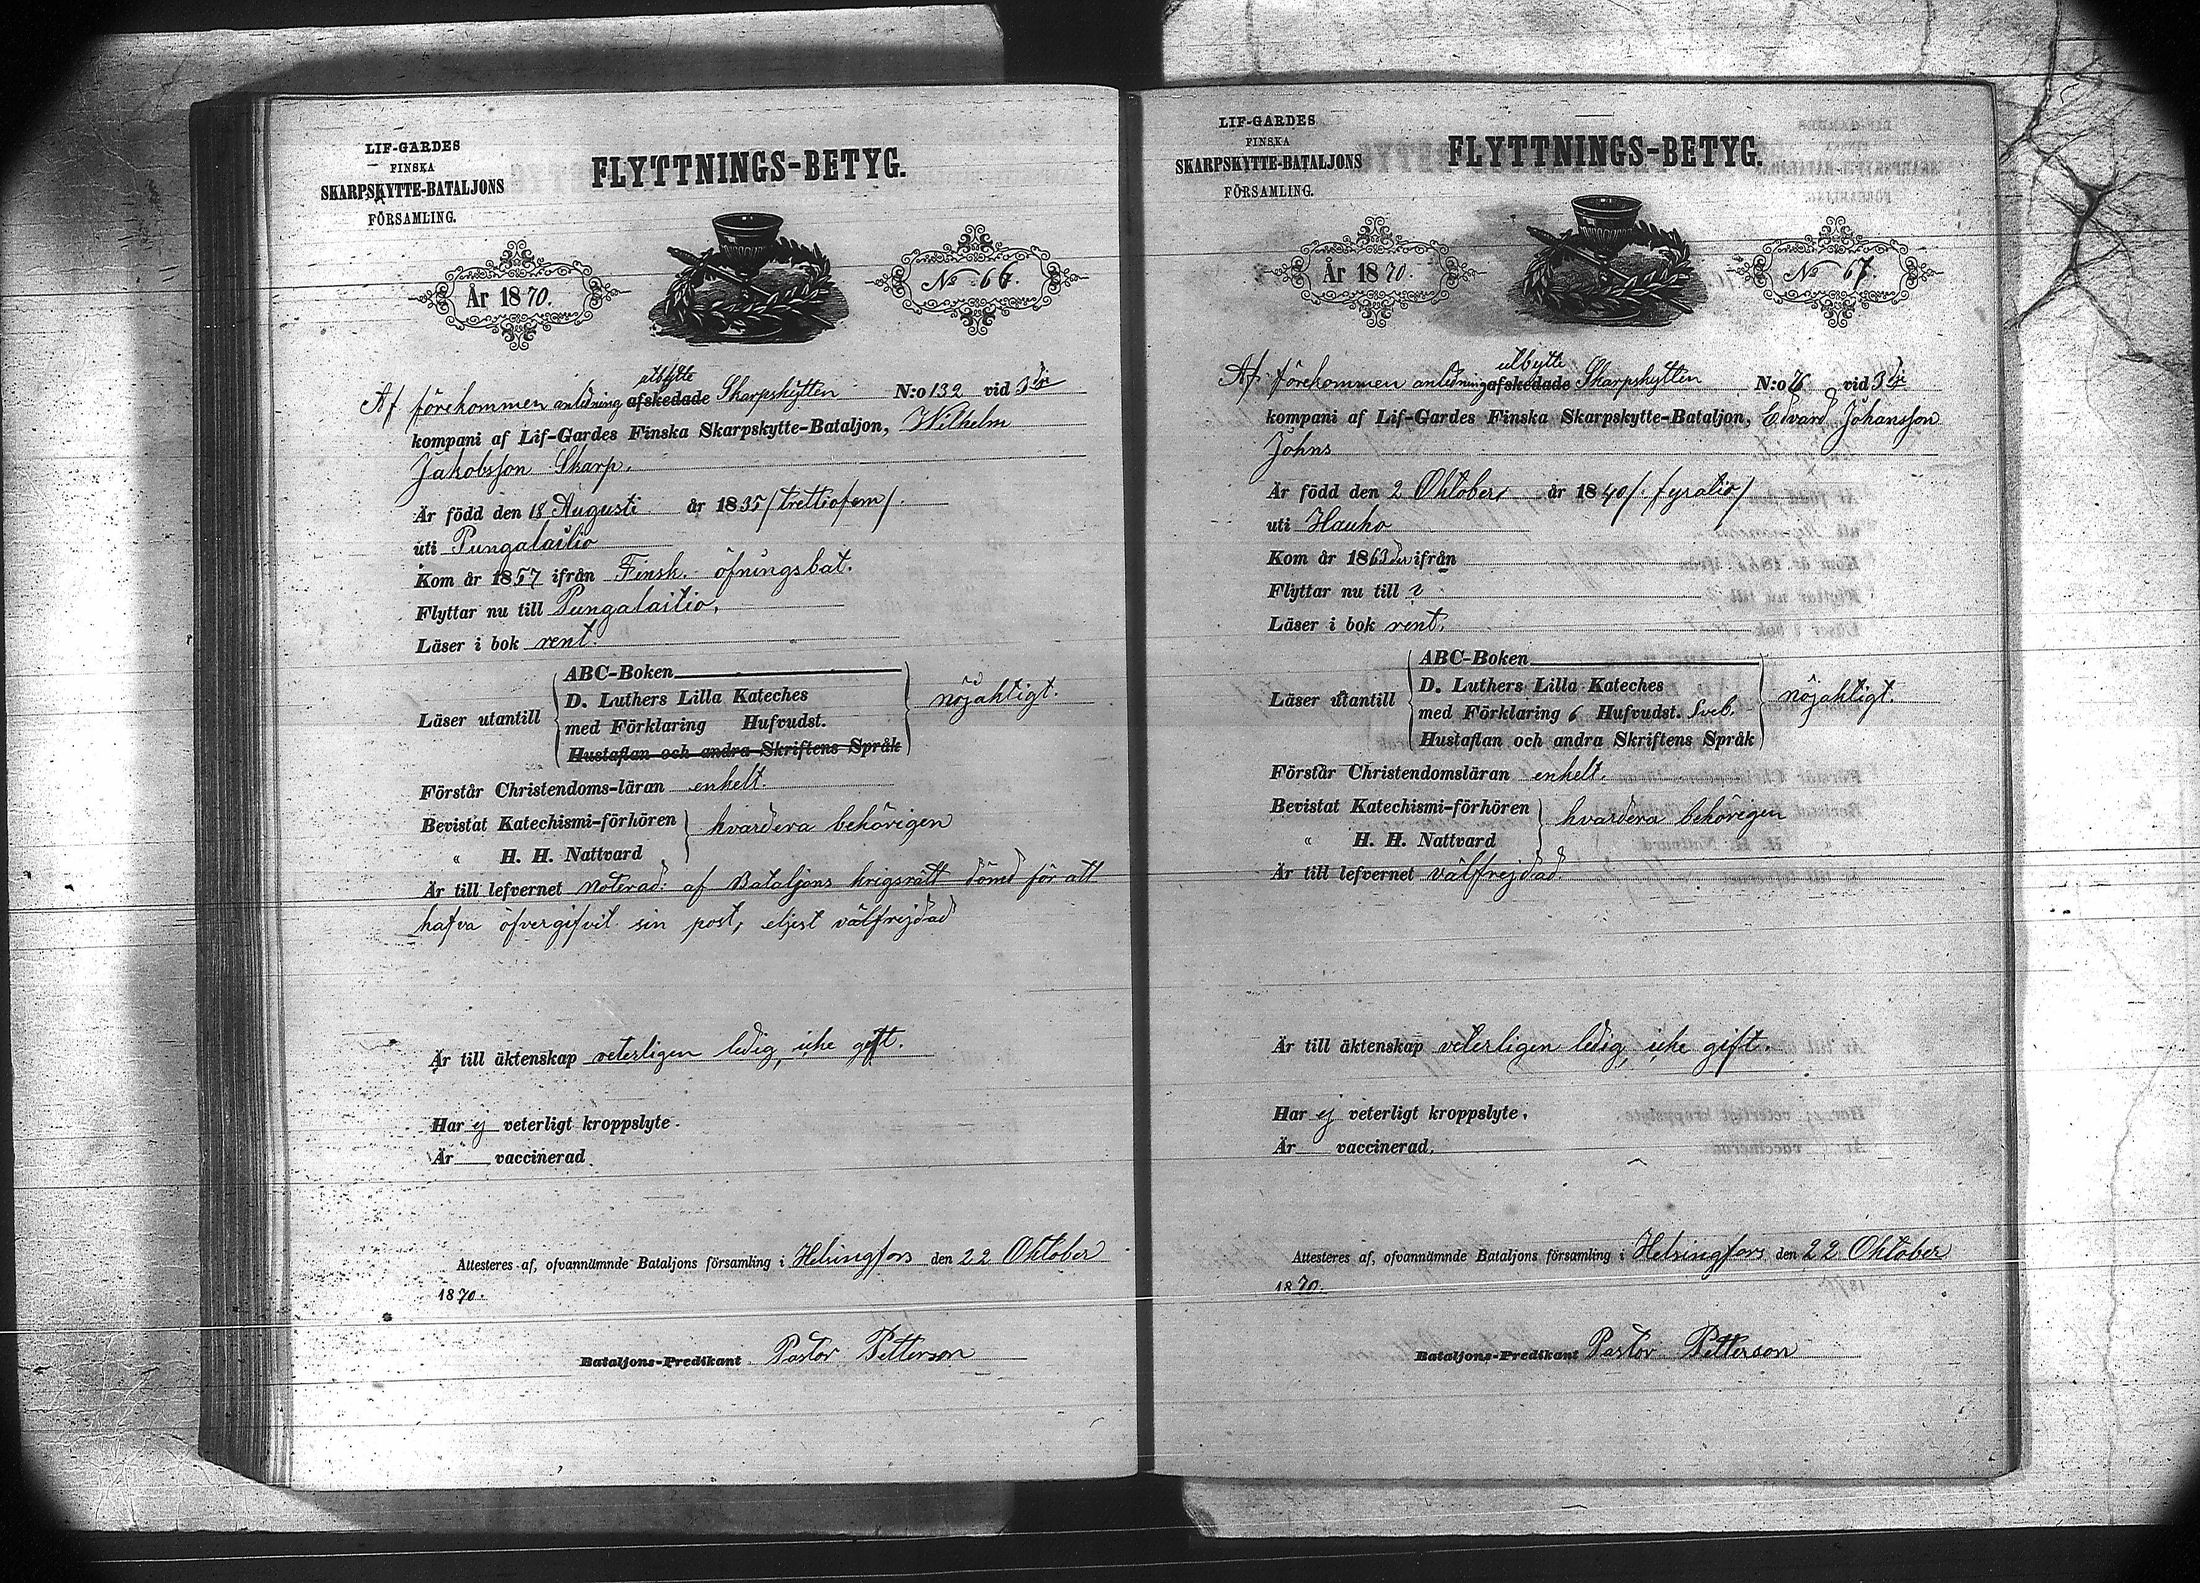 LIF-GARDES
FINSKA
SKARPSKYTTE-BATALJONS
FÖRSAMLING.
FLYTTNINGS-BETYG.
År 1870.
No 66.
utbytte
Af förekommen anledning afskedade Skarpskytten N:o 132 vid 3dje
kompani af Lif-Gardes Finska Skarpskytte-Bataljon, Wilhelm
Jakobsson Skarp.
Är född den 18 Augusti år 1835 /trettiofem/.
uti Pungalaitio
Kom år 1857 ifrån Finsk. öfningsbat.
Flyttar nu till Pungalaitio.
Läser i bok rent.
ABC-Boken
D. Luthers Lilla Kateches
Läser utantill med Förklaring Hufvudst. nöjaktigt.
Hustaflan och andra Skriftens Språk
Förstår Christendoms-läran enkelt.
Bevistat Katechismi-förhören hvardera behörigen
" H. H. Nattvard
Är till lefvernet noterad: af Bataljons krigsrätt dömd för att
hafva öfvergifvit sin post, eljest välfrejdad
Är till äktenskap veterligen ledig, icke gift.
Har ej veterligt kroppslyte.
Är vaccinerad
Attesteras af, ofvannämnde Bataljons församling i Helsingfors den 22 Oktober
1870.
Bataljons-Predikant Pastor Petterson
LIF-GARDES
FINSKA
SKARPSKYTTE-BATALJONS
FÖRSAMLING.
FLYTTNINGS-BETYG.
År 1870.
No 67.
utbytte
Af förekommen anledning afskedade Skarpskytten N:o 76 vid 3dje
kompani af Lif-Gardes Finska Skarpskytte-Bataljon, Edvard Johansson
Johns
Är född den 2 Oktober år 1840 /fyratio/
uti Hauho
Kom år 1863 ifrån
Flyttar nu till ?
Läser i bok rent.
ABC-Boken
D. Luthers Lilla Kateches
Läser utantill med Förklaring 6 Hufvudst. Sveb. nöjaktigt.
Hustaflan och andra Skriftens Språk
Förstår Christendomsläran enkelt.
Bevistat Katechismi-förhören hvardera behörigen
" H. H. Nattvard
Är till lefvernet välfrejdad
Är till äktenskap veterligen ledig, icke gift.
Har ej veterligt kroppslyte.
Är vaccinerad.
Attesteres af, ofvannämnde Bataljons församling i Helsingfors den 22 Oktober
1870.
Bataljons-Predikant Pastor Petterson